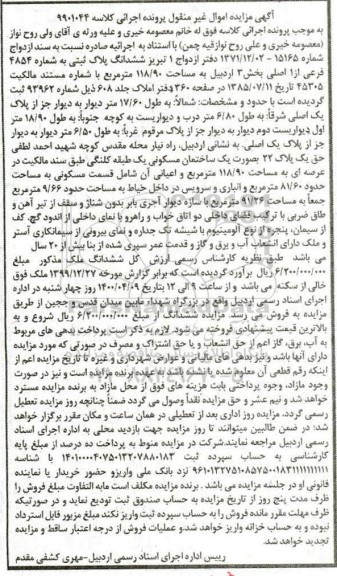 آگهی مزایده اموال غیر منقول پرونده اجرائی کلاسه ۹۹۰۱۰۴۴
به موجب پرونده اجرائی کلاسه فوق له خانم معصومه خیری و علیه ورثه ی آقای ولی روح نواز
(معصومه خیری و علی روح نوازقیه چمن) با استناد به اجرائیه صادره نسبت به سند ازدواج
شماره ۱۵۱۶۵ - ۱۳۷۱/۱۲/۰۲ دفتر ازدواج ۱ تبریز ششدانگ پلاک ثبتی به شماره ۴۸۵۴
فرعی از۱ اصلی بخش۳ اردبیل به مساحت ۱۱۸/۹۰ مترمربع با شماره مستند مالکیت
۴۵۳۰۵ تاریخ ۱۳۸۵/۰۷/۱۱ در صفحه ۳۶۰ دفتر املاک جلد ۶۰۸ ذیل شماره ۹۳۹۶۲ ثبت
گردیده است با حدود و مشخصات: شمالاً: به طول ۱۷/۶۰ متر دیوار به دیوار جز از پلاک
یک اصلی شرقاً: به طول ۶/۸۰ متر درب و دیواریست به کوچه جنوباً: به طول ۱۸/۹۰ متر
اول دیواریست دوم دیوار به دیوار جز از پلاک مرقوم غرباً: به طول ۶/۵۰ متر دیوار به دیوار
جز از پلاک یک اصلی. به نشانی اردبیل، راه نیار محله مقدس کوچه شهید احمد لطفی
حق یک پلاک ۲۲ بصورت یک ساختمان مسکونی یک طبقه کلنگی طبق سند مالکیت در
عرصه ای به مساحت ۱۱۸/۹۰ مترمربع و اعیانی آن شامل قسمت مسکونی به مساحت
حدود ۸۱/۶۰ مترمربع و انباری و سرویس در داخل حیاط به مساحت حدود ۹/۶۶ مترمربع
جمعاً به مساحت ۹۱/۲۶ مترمربع با سازه دیوار آجری باربر بدون شناژ و سقف از تیر آهن و
طاق ضربی با ترکیب فضای داخلی دو اتاق خواب و راهرو با نمای داخلی از اندود گچ، کف
از سیمان، پنجره از نوع آلومینیوم با شیشه تک جداره و نمای بیرونی از سیمانکاری آستر
و ملک دارای انشعاب آب و برق و گاز و قدمت عمر سپری شده از بنا بیش از ۲۰ سال
می باشد. طبق نظریه کارشناس رسمی ارزش کل ششدانگ ملک مذکور مبلغ
۶/۲۰۰/۰۰۰/۰۰۰ ریال برآورد گردیده است که برابر گزارش مورخه ۱۳۹۹/۱۲/۲۷ ملک فوق
خالی از سکنه می باشد. و از ساعت ۹ الی ۱۲ بتاریخ ۱۴۰۰/۰۴/۰۹ روز چهارشنبه در اداره
اجرای اسناد رسمی اردبیل واقع در بزرگراه شهداء مابین میدان قدس و ججین از طریق
مزایده به فروش می رسد. مزایده ششدانگ از مبلغ ۶/۲۰۰/۰۰۰/۰۰۰ ریال شروع و به
بالاترین قیمت پیشنهادی فروخته می شود. لازم به ذکر است پرداخت بدهی های مربوط
به آب، برق، گاز اعم از حق انشعاب و یا حق اشتراک و مصرف در صورتی که مورد مزایده
دارای آنها باشد و نیز بدهی های مالیاتی و عوارض شهرداری و غیره تا تاریخ مزایده اعم از
اینکه رقم قطعی آن معلوم شده یا نشده باشد به عهده برنده مزایده است و نیز در صورت
وجود مازاد، وجوه پرداختی بابت هزینه های فوق از محل مازاد به برنده مزایده مسترد
خواهد شد و نیم عشر و حق مزایده نقداً وصول می گردد ضمناً چنانچه روز مزایده تعطیل
رسمی گردد، مزایده روز اداری بعد از تعطیلی در همان ساعت و مکان مقرر برگزار خواهد
شد؛ در ضمن طالبین میتوانند تا روز مزایده جهت بازدید محلی به اداره اجرای اسناد
رسمی اردبیل مراجعه نمایند.شرکت در مزایده منوط به پرداخت ده درصد از مبلغ پایه
کارشناسی به حساب سپرده ثبت با شناسه
نزد بانک ملی واریزو حضور خریدار یا نماینده
قانونی او در جلسه مزایده می باشد. برنده مزایده مکلف است مابه التفاوت مبلغ فروش را
ظرف مدت پنج روز از تاریخ مزایده به حساب صندوق ثبت تودیع نماید و در صورتیکه
ظرف مهلت مقرر مانده فروش را به حساب سپرده ثبت واریز نکند مبلغ مزبور قابل استرداد
نبوده و به حساب خزانه واریز خواهد شد.و عملیات فروش از درجه اعتبار ساقط و مزایده
تجدید خواهد شد.
رییس اداره اجرای اسناد رسمی اردبیل-مهری کشفی مقدم